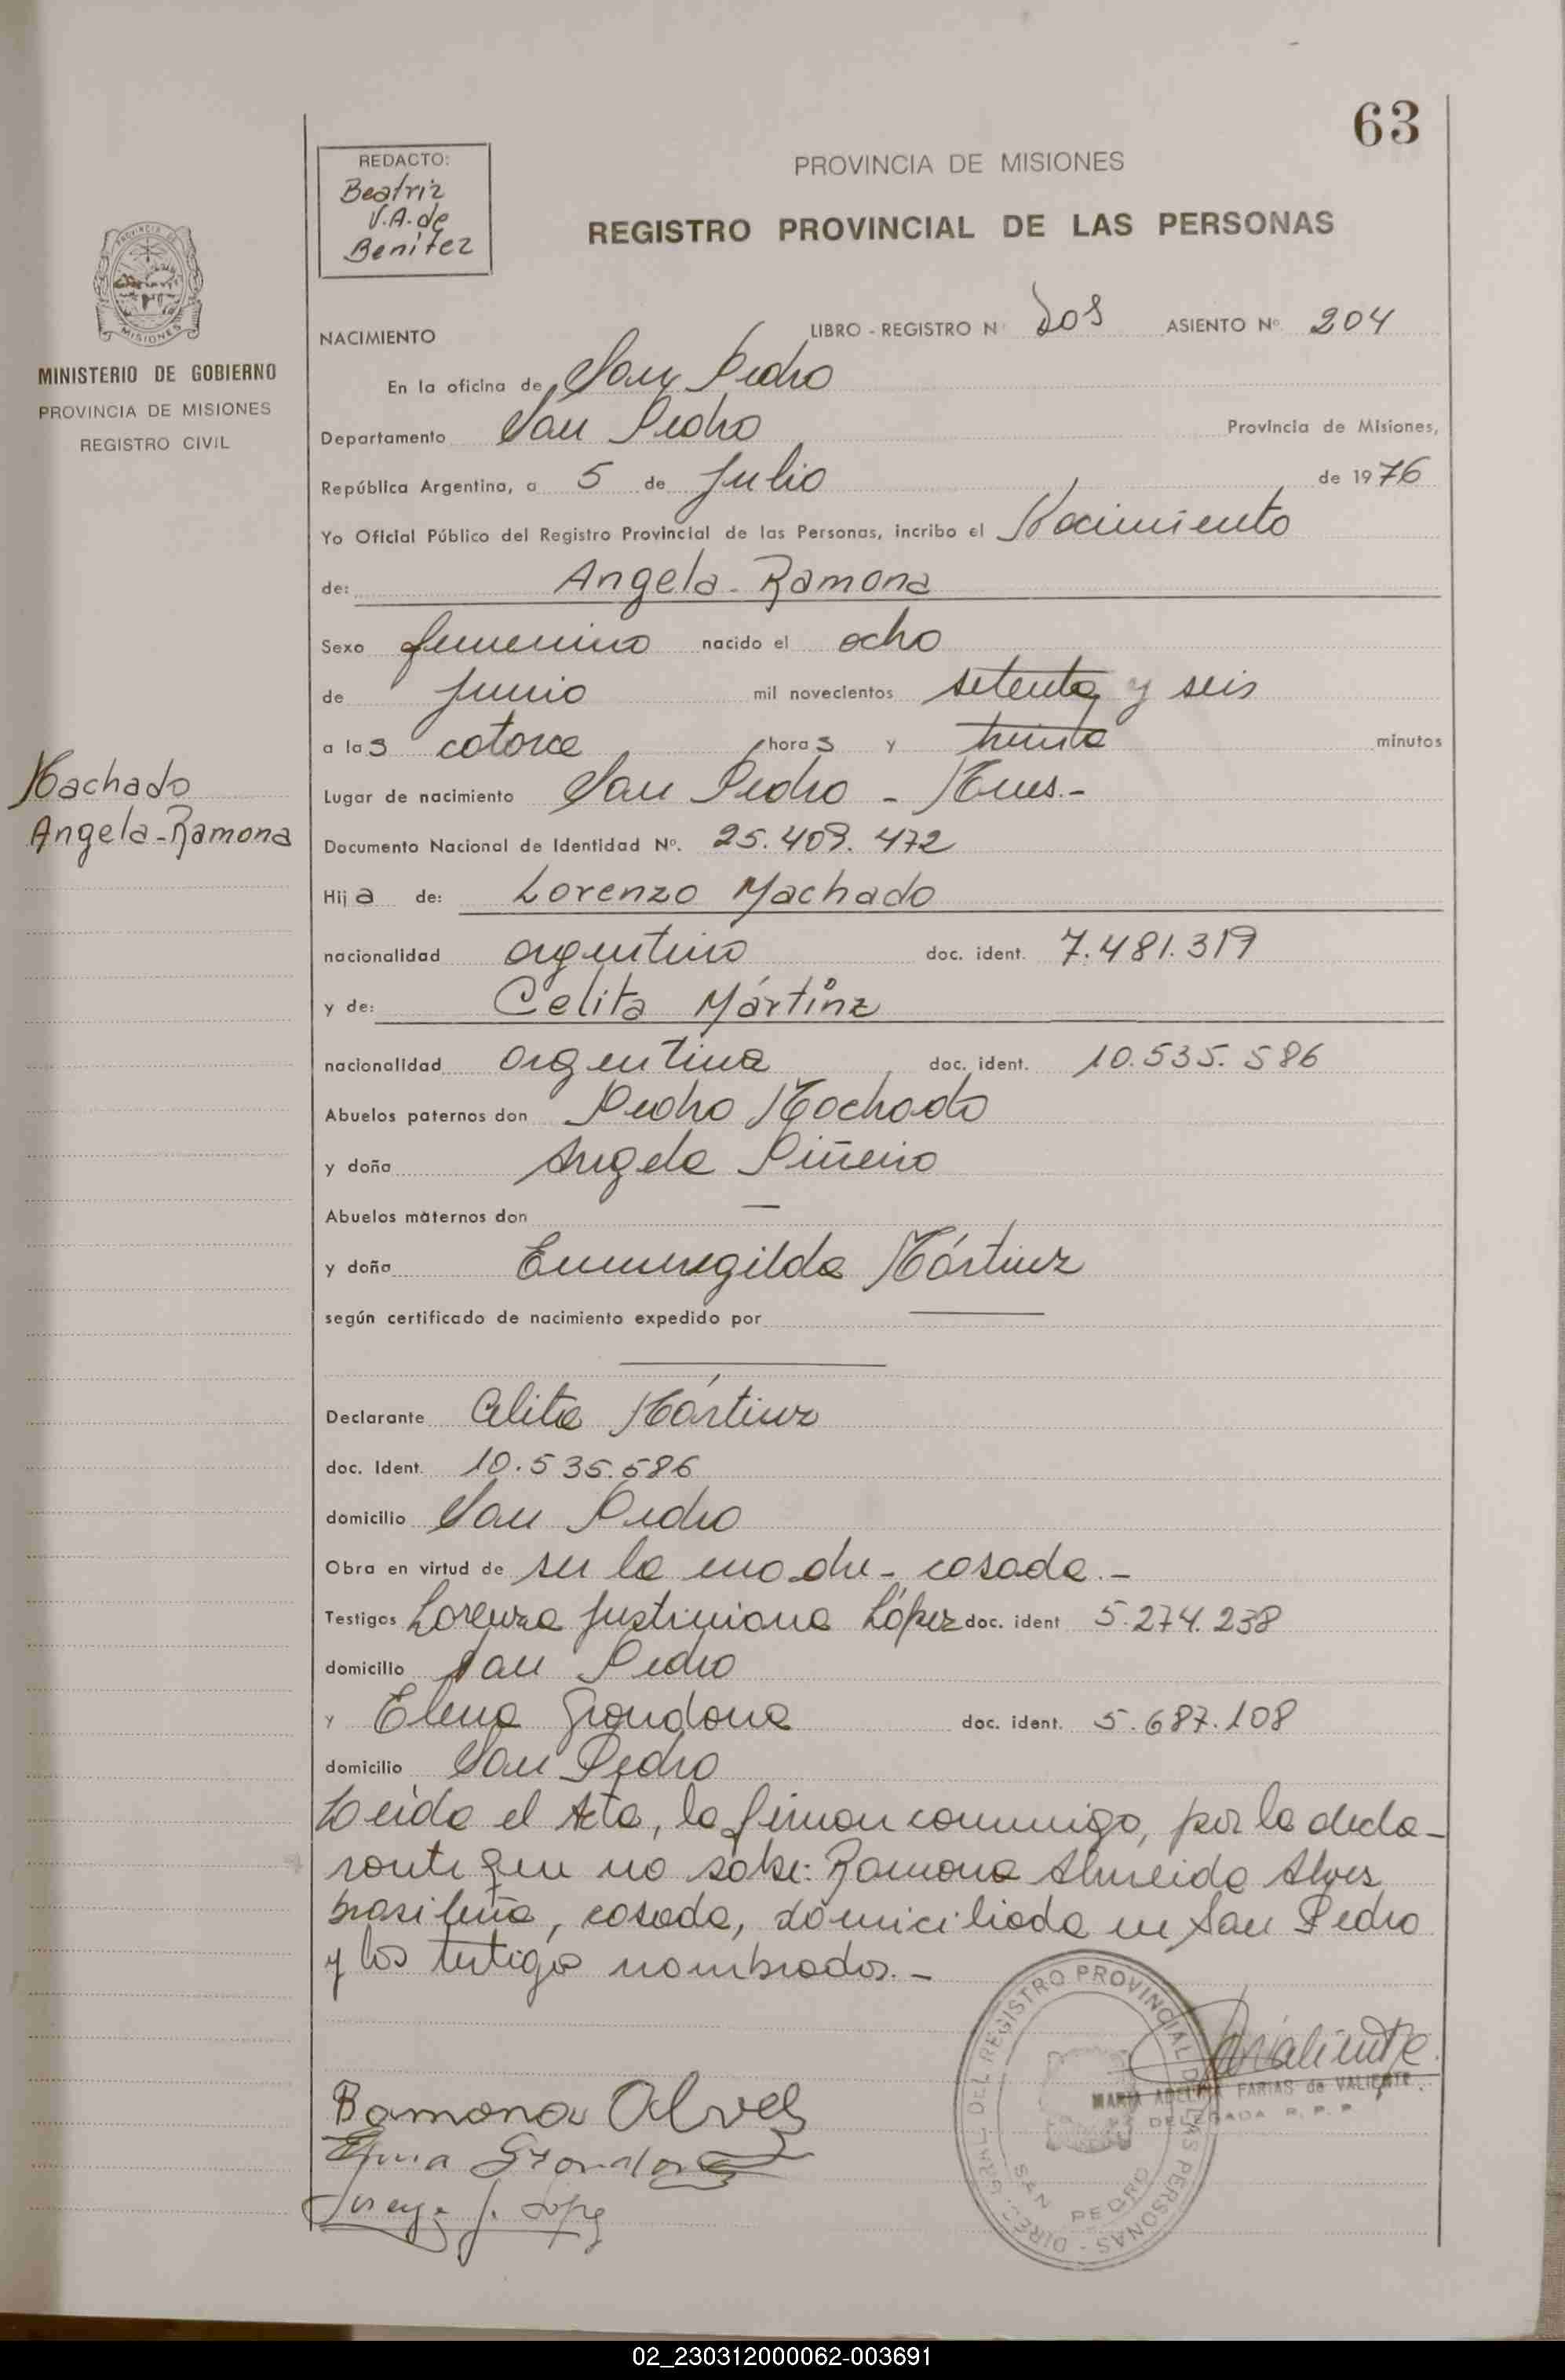 63
REDACTO:
Beatriz
V.A. de
Benítez
PROVINCIA DE MISIONES
REGISTRO PROVINCIAL DE LAS PERSONAS
PROVINCIA DE
MISIONES
MINISTERIO DE GOBIERNO
PROVINCIA DE MISIONES
REGISTRO CIVIL
NACIMIENTO LIBRO - REGISTRO N° Dos ASIENTO N° 204
En la oficina de San Pedro
Departamento San Pedro Provincia de Misiones,
República Argentina, a 5 de Julio de 1976
Yo Oficial Público del Registro Provincial de las Personas, incribo el Nacimiento
de: Angela-Ramona
Sexo femenino nacido el ocho
de Junio mil novecientos setenta y seis
a las catorce horas y treinta minutos
Machado
Angela-Ramona
Lugar de nacimiento San Pedro - Mnes.-
Documento Nacional de Identidad N°. 25.409.472
Hija de: Lorenzo Machado
nacionalidad argentino doc. ident. 7.481.319
y de: Celita Mártinz
nacionalidad argentina doc. ident. 10.535.586
Abuelos paternos don Pedro Machado
y doña Angela Piñeiro
Abuelos maternos don —
y doña Emmeregilda Mártinz
según certificado de nacimiento expedido por
Declarante Celita Mártinz
doc. Ident. 10.535.586
domicilio San Pedro
Obra en virtud de ser la madre - casada.-
Testigos Lorenza Justiniana López doc. ident 5.274.238
domicilio San Pedro
y Elena Grondona doc. ident. 5.687.108
domicilio San Pedro
Leída el Acta, la firman conmigo, por la decla-
rante que no sabe: Ramona Almeida Alves
brasileña, casada, domiciliada en San Pedro
y los testigos nombrados.-
DIREC. GRAL. DEL REGISTRO PROVINCIAL DE LAS PERSONAS -
SAN PEDRO
Valiente
MARIA ADELINA FARIAS de VALIENTE
DELEGADA R. P. P.
Ramona Alves
Grondona
J. Lopez
02_230312000062-003691